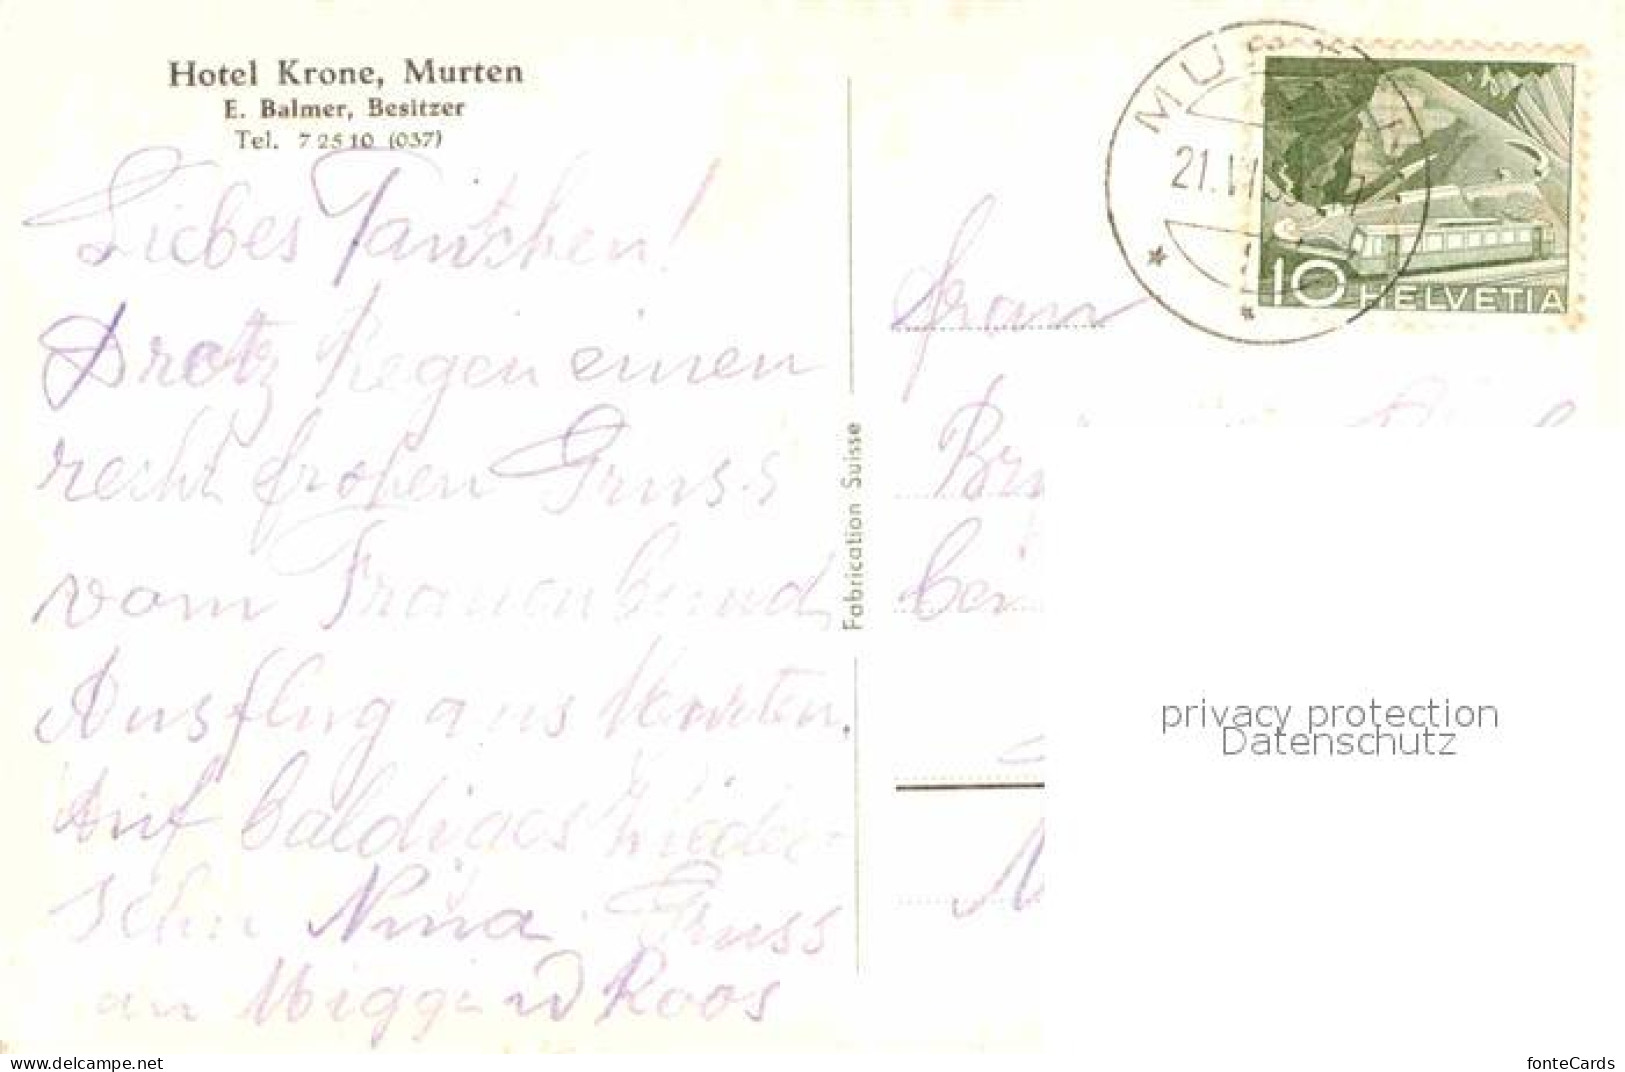 Hotel Krone, Murten
E. Balmer, Besitzer
Tel. 7 25 10 (037)
Liebes Tantchen!
Trotz Regen einen
recht frohen Gruss
vom Frauenbund
Ausflug aus Murten.
Auf baldiges Wieder-
sehn Nina. Gruss
an Miggi u Roos
Fabrication Suisse
MURTEN
21.VI
10 HELVETIA
Frau
bei
privacy protection
Datenschutz
www.delcampe.net
fonteCards